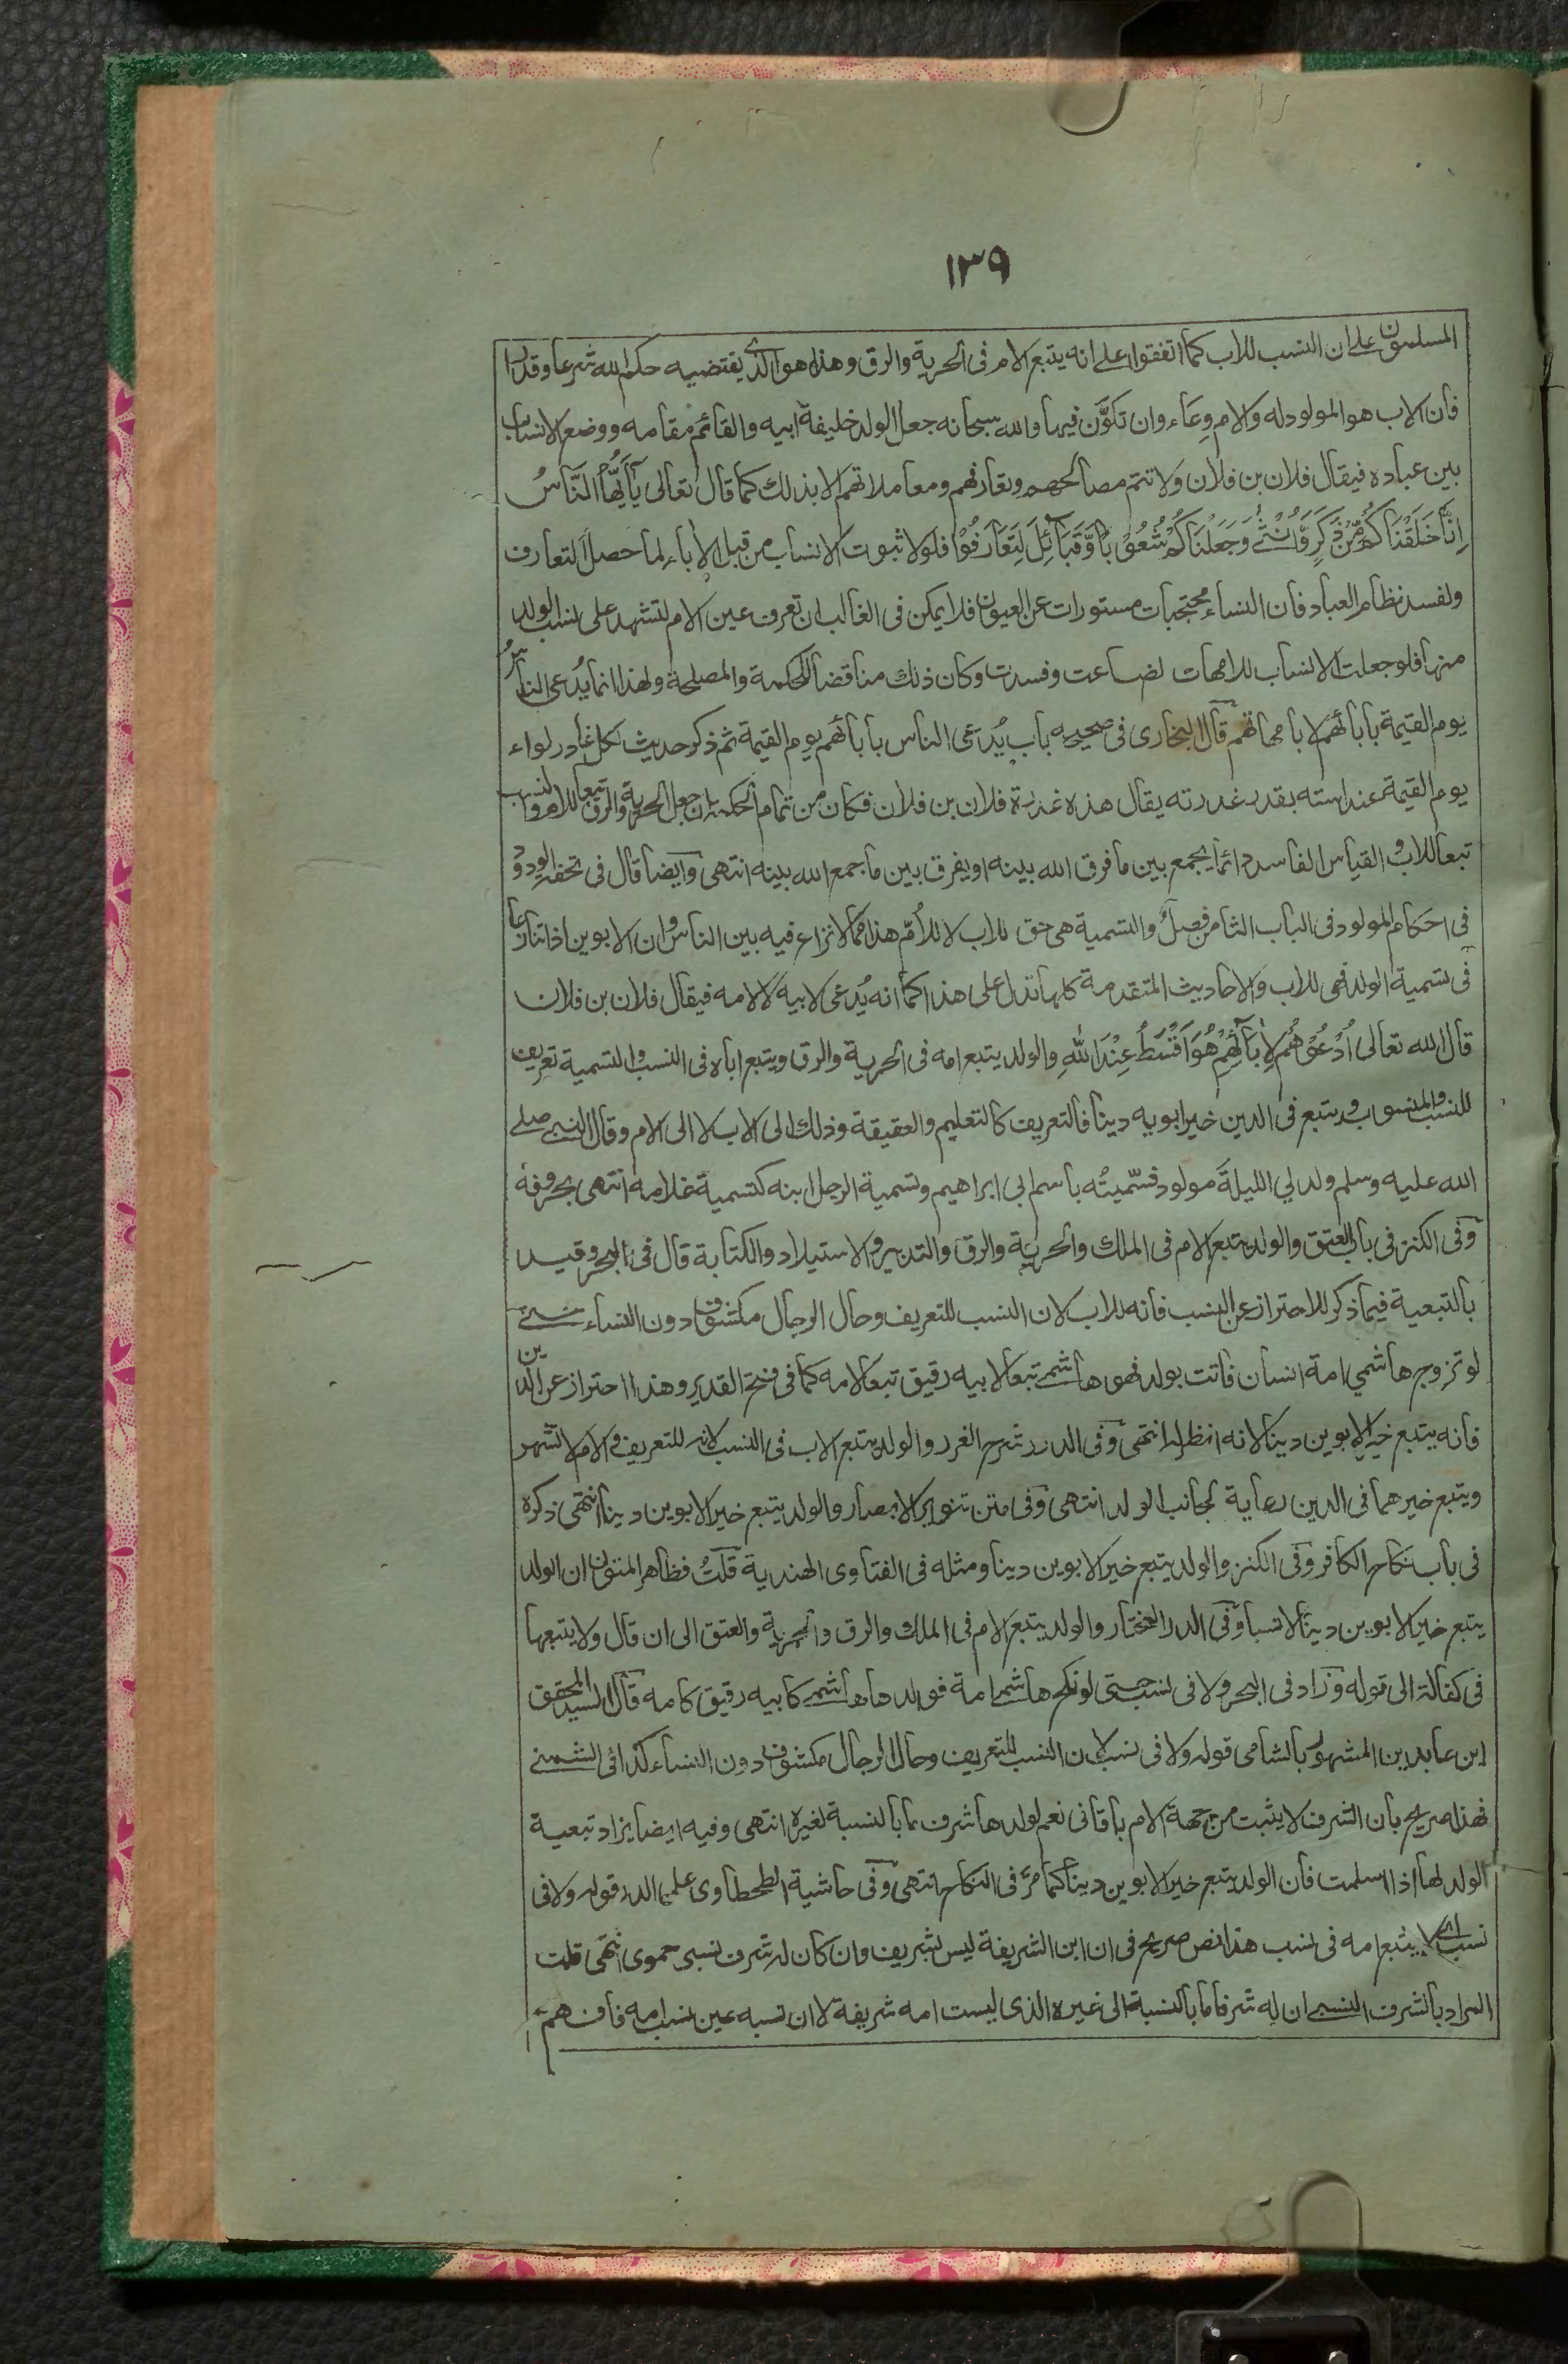 ١٣٩
المسلمون على ان النسب للاب كما اتفقوا على انه يتبع الام فى الحرية والرق وهذا هو الذى يقتضيه حكم الله شرعا وقدرا
فان الاب هو المولود له والام وِعَاء وان تكوَّن فيها والله سبحانه جعل الولد خليفة ابيه والقائم مقامه ووضع الانساب
بين عباده فيقال فلان بن فلان ولا تتم مصالحهم وتعارفهم ومعاملاتهم الا بذلك كما قال تعالى يٰٓاَيُّهَا النَّاسُ
اِنَّا خَلَقْنَاكُمْ مِّنْ ذَكَرٍ وَّاُنْثٰى وَجَعَلْنَاكُمْ شُعُوْبًا وَّقَبَآئِلَ لِتَعَارَفُوْا فلولا ثبوت الانساب من قبل الاٰباء لما حصل التعارف
ولفسد نظام العباد فان النساء محتجبات مستورات عن العيون فلا يمكن فى الغالب ان تعرف عين الام لتشهد على نسب الولد
منها فلو جعلت الانساب للامهات لضاعت وفسدت وكان ذلك مناقضا للحكمة والمصلحة ولهذا انما يُدعى الناسُ
يوم القيٰمة بابائهم لا بامهاتهم قال البخارى فى صحيحه باب يُدعى الناس باٰبائهم يوم القيٰمة ثم ذكر حديث لكل غادر لواء
يوم القيٰمة عند استه بقدر غدرته يقال هذه غدرة فلان بن فلان فكان من تمام الحكمة ان جعل الحرية والرق تبعا للام والنسب
تبعا للاب والقياس الفاسد دائما يجمع بين ما فرق الله بينه او يفرق بين ما جمع الله بينه انتهى وايضا قال فى تحفة الودود
فى احكام المولود فى الباب الثامن فصلٌ والتسمية هى حق للاب لا للاُمّ هذا مما لا نزاع فيه بين الناس وان الابوين اذا تنازعا
فى تسمية الولد فهى للاب والاحاديث المتقدمة كلها تدل على هذا كما انه يُدعى لابيه لا لامه فيقال فلان بن فلان
قال الله تعالى اُدْعُوْهُمْ لِاٰبَآئِهِمْ هُوَ اَقْسَطُ عِنْدَ اللهِ والولد يتبع امه فى الحرية والرق ويتبع اباه فى النسب والتسمية تعريف
للنسب والمنسوب ويتبع فى الدين خير ابويه دينا فالتعريف كالتعليم والعقيقة وذلك الى الاب لا الى الام وقال النبى صلى
الله عليه وسلم ولد لي الليلةَ مولود فسّميتُه باسم ابى ابراهيم وتسمية الرجل ابنه كتسمية غلامه انتهى بحروفه
وفى الكنز فى باب العتق والولد يتبع الام فى الملك والحرية والرق والتدبير والاستيلاد والكتابة قال فى البحر وقيد
بالتبعية فيما ذكر للاحتراز عن النسب فانه للاب لان النسب للتعريف وحال الرجال مكشوف دون النساء حتى
لو تزوج هاشمي امة انسان فاتت بولد فهو هاشمى تبعا لابيه رقيق تبعا لامه كما فى فتح القدير وهذا احتراز عن الدين
فانه يتبع خير الابوين دينا لانه انظر له انتهى وفى الدرر شرح الغرر والولد يتبع الاب فى النسب لانه للتعريف والام لا تشهر
ويتبع خيرهما فى الدين رعاية لجانب الولد انتهى وفى متن تنوير الابصار والولد يتبع خير الابوين دينا انتهى ذكره
فى باب نكاح الكافر وفى الكنز والولد يتبع خير الابوين دينا ومثله فى الفتاوى الهندية قلتُ فظاهر المتون ان الولد
يتبع خير الابوين دينا لا نسبا وفى الدر المختار والولد يتبع الام فى الملك والرق والحرية والعتق الى ان قال ولا يتبعها
فى كفالة الى قوله وزاد فى البحر ولا فى نسب حتى لو نكح هاشمى امة فولدها هاشمى كابيه رقيق كامه قال السيد المحقق
ابن عابدين المشهور بالشامى قوله ولا فى نسب لان النسب للتعريف وحال الرجال مكشوف دون النساء كذا فى الشمنى
فهذا صريح بان الشرف لا يثبت من جهة الام باقانى نعم لولدها شرف ما بالنسبة لغيره انتهى وفيه ايضا يزاد تبعية
الولد لها اذا اسلمت فان الولد يتبع خير الابوين دينا كما مرّ فى النكاح انتهى وفى حاشية الطحطاوى على الدر قوله ولا فى
نسب اى لا يتبع امه فى نسب هذا نص صريح فى ان ابن الشريفة ليس بشريف وان كان له شرف نسبى حموى انتهى قلت
المراد بالشرف النسبى ان له شرفا ما بالنسبة الى غيره الذى ليست امه شريفة لا ان نسبه عين نسب امه فافهم